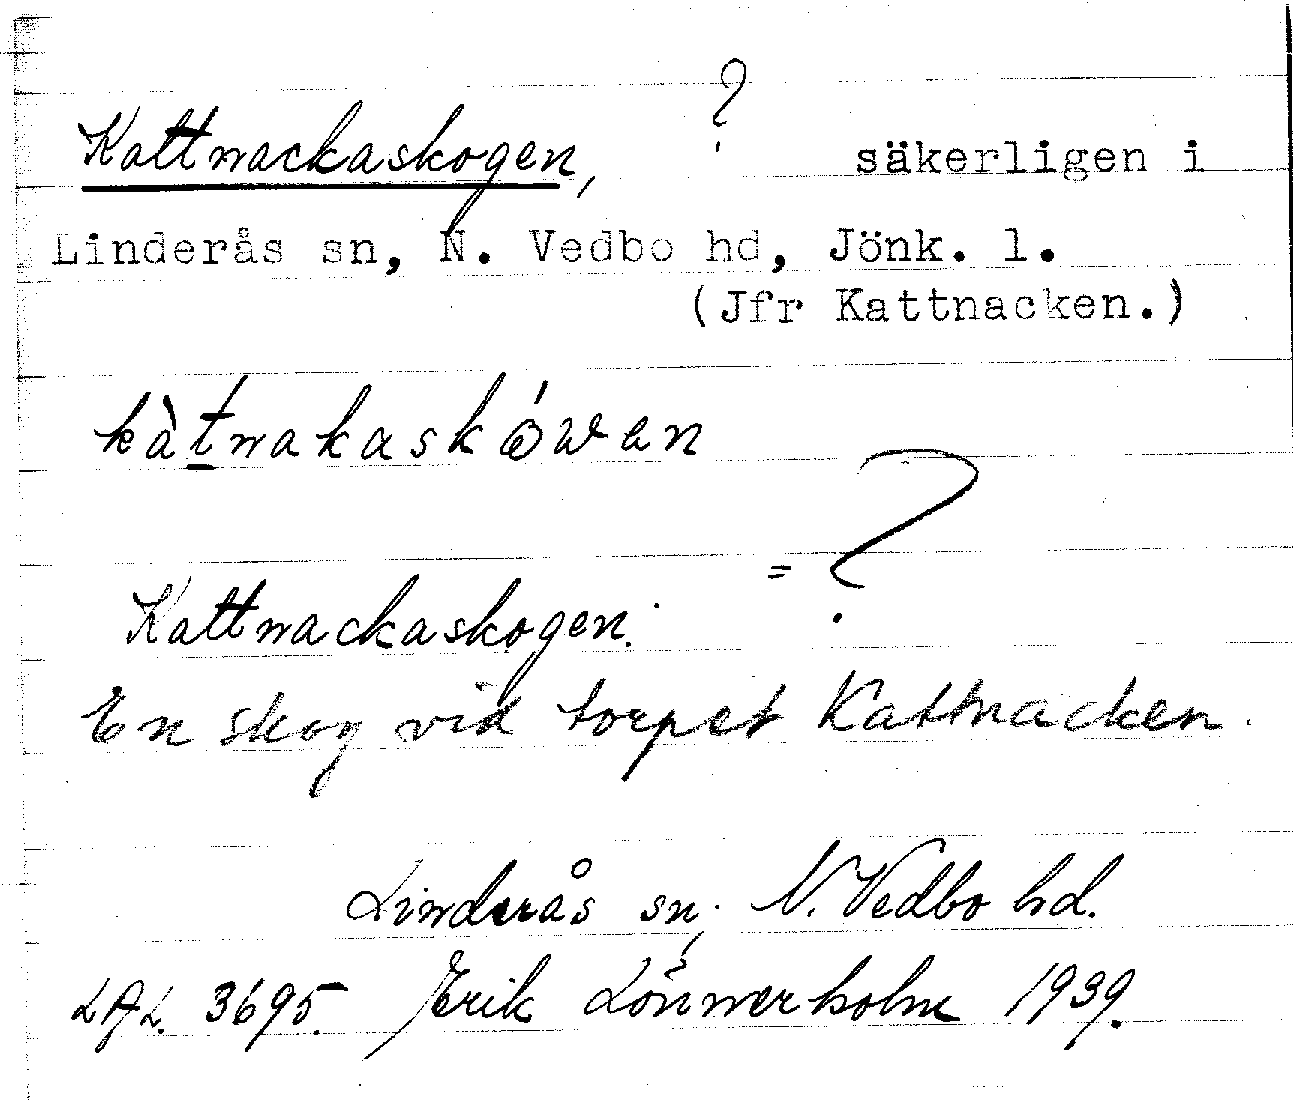 Kattnackaskogen, ? säkerligen i
Linderås sn, N. Vedbo hd, Jönk. l.
(Jfr Kattnacken.)
kàtnakaskówan
= ?
Kattnackaskogen.
En skog vid torpet Kattnacken.
Linderås sn, N. Vedbo hd.
LAL. 3695. Erik Lönnerholm 1939.